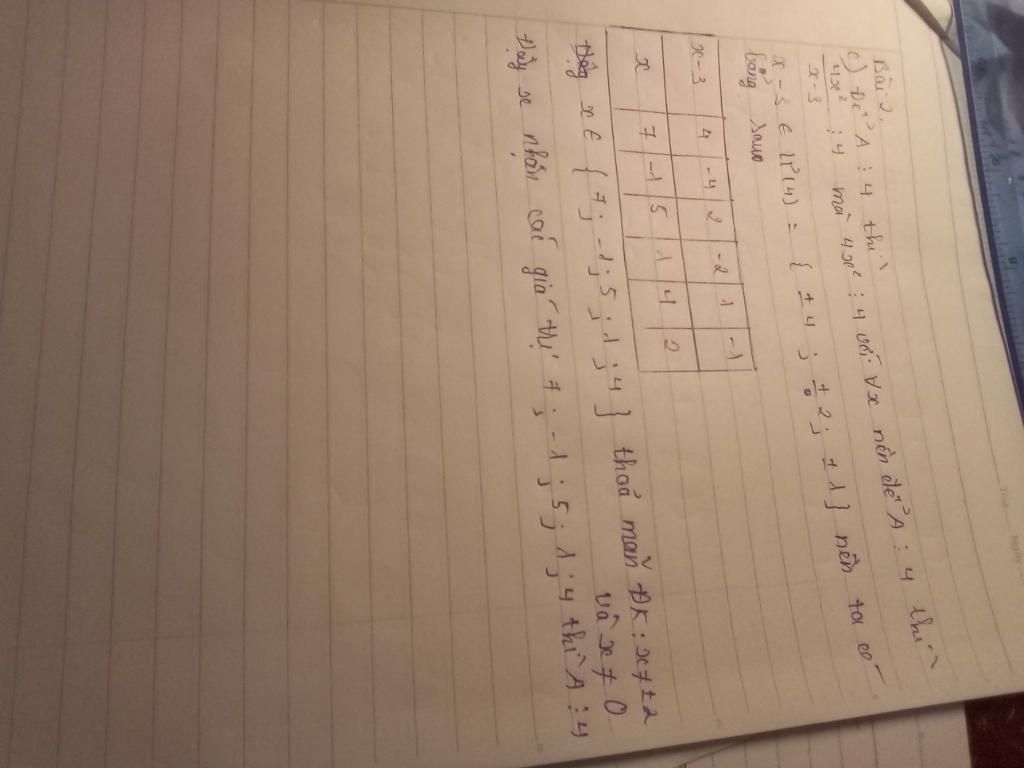 Bài 2.
c) Để A ⋮ 4 thì
4x²/x-3 ⋮ 4 mà 4x² ⋮ 4 với ∀x nên để A ⋮ 4 thì
x-3 ∈ Ư(4) = { ±4 ; ±2 ; ±1 } nên ta có
bảng sau
x-3 4 -4 2 -2 1 -1
x 7 -1 5 1 4 2
x ∈ { 7 ; -1 ; 5 ; 1 ; 4 } thoả mãn ĐK : x ≠ ±2
và x ≠ 0
Vậy x nhận các giá trị 7 ; -1 ; 5 ; 1 ; 4 thì A ⋮ 4